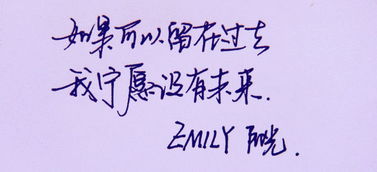 如果可以留在过去
我宁愿没有未来.
EMILY 陌光.